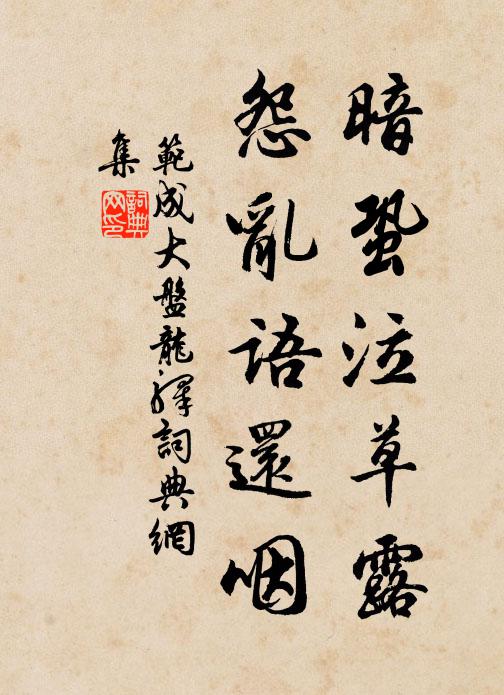 暗蛩泣草露
怨亂語還咽
範成大盤龍驛詞典網
集
詞典
网印